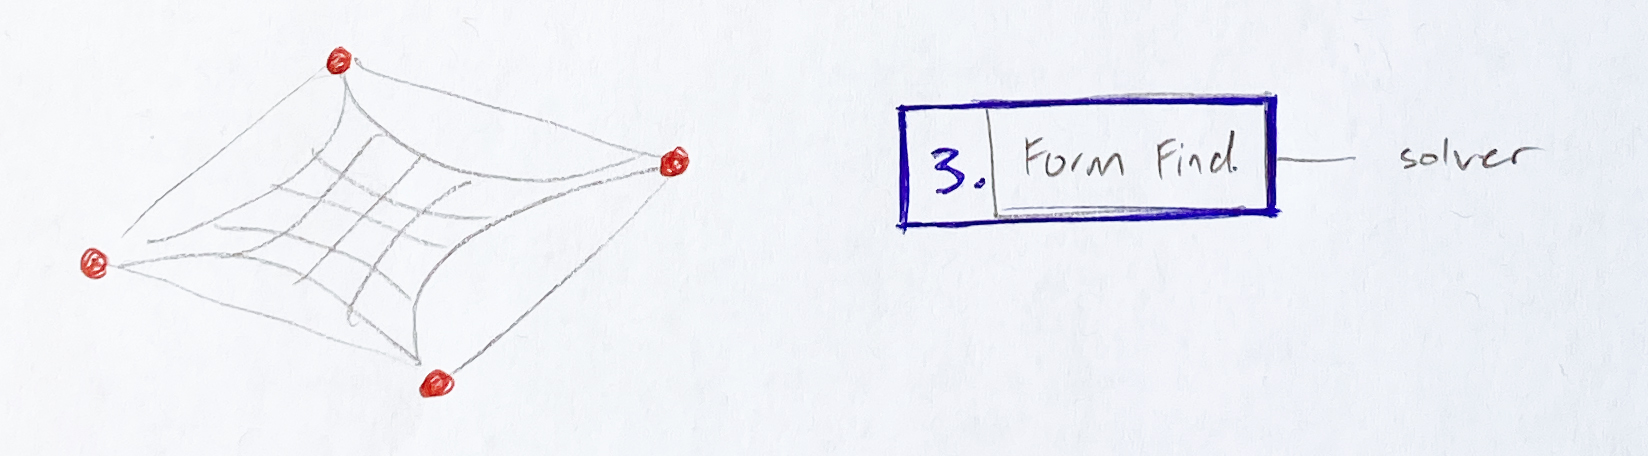 3. Form Find.
solver